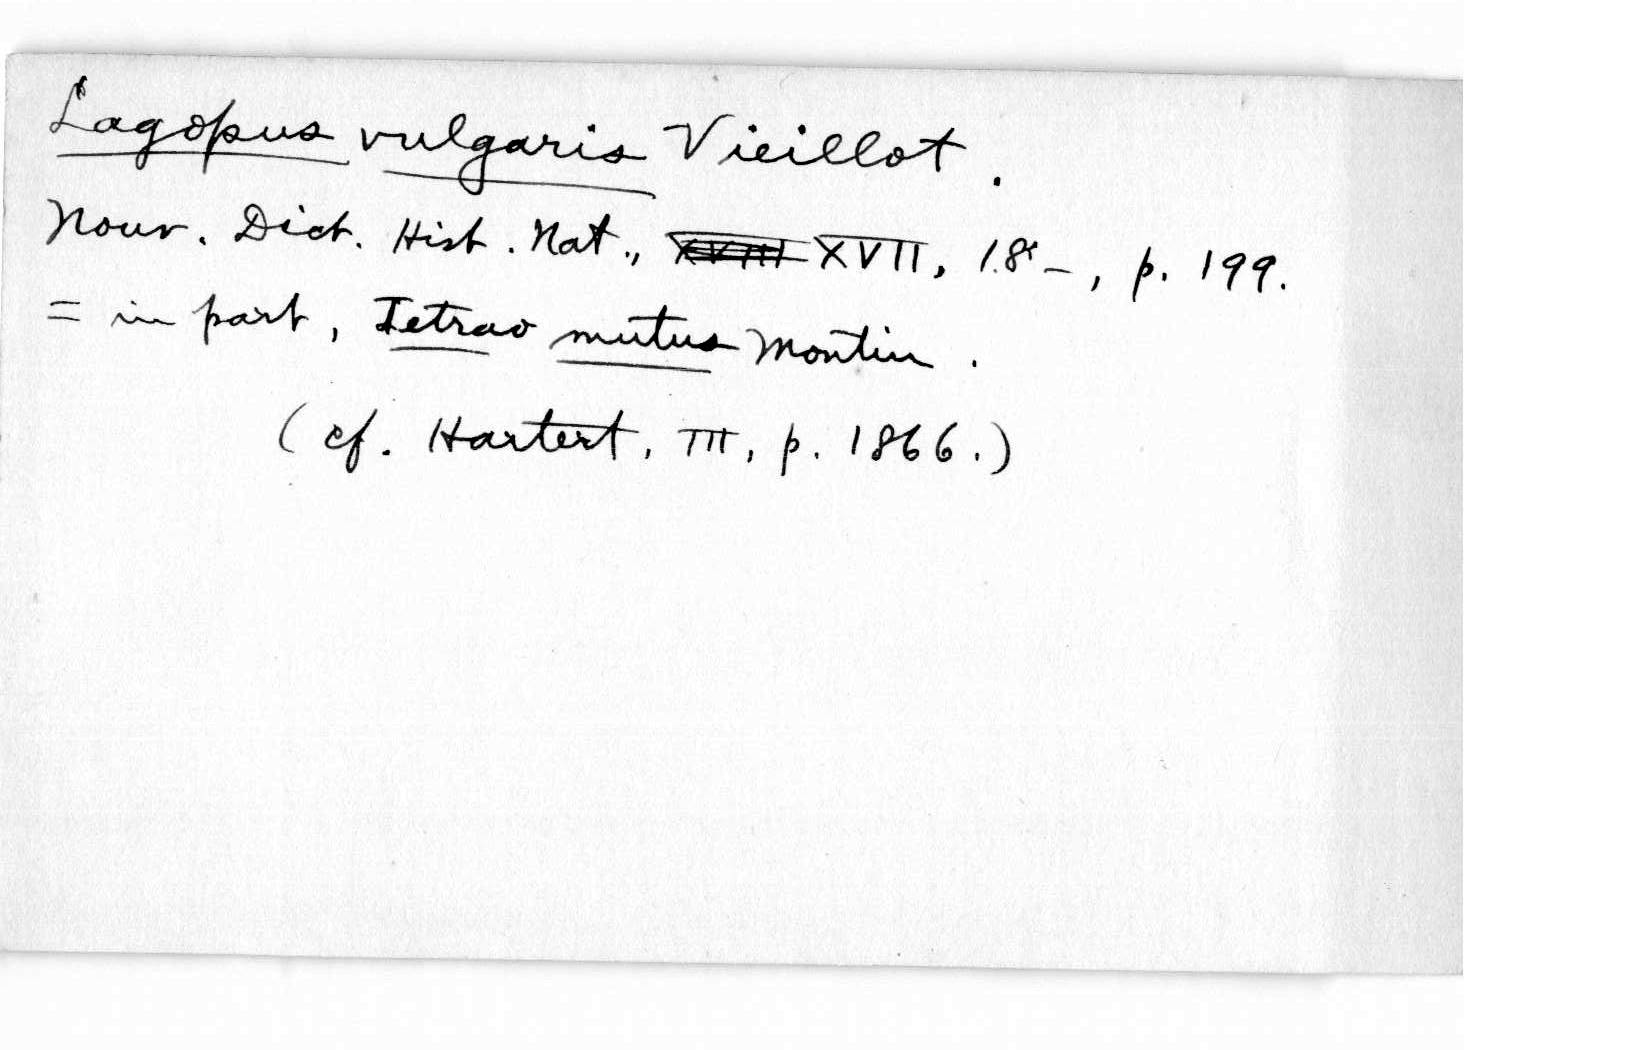 Lagopus vulgaris Vieillot.
Nouv. Dict. Hist. Nat., XVII, 18–, p. 199.
= in part, Tetrao mutus Montin.
(cf. Hartert, III, p. 1866.)